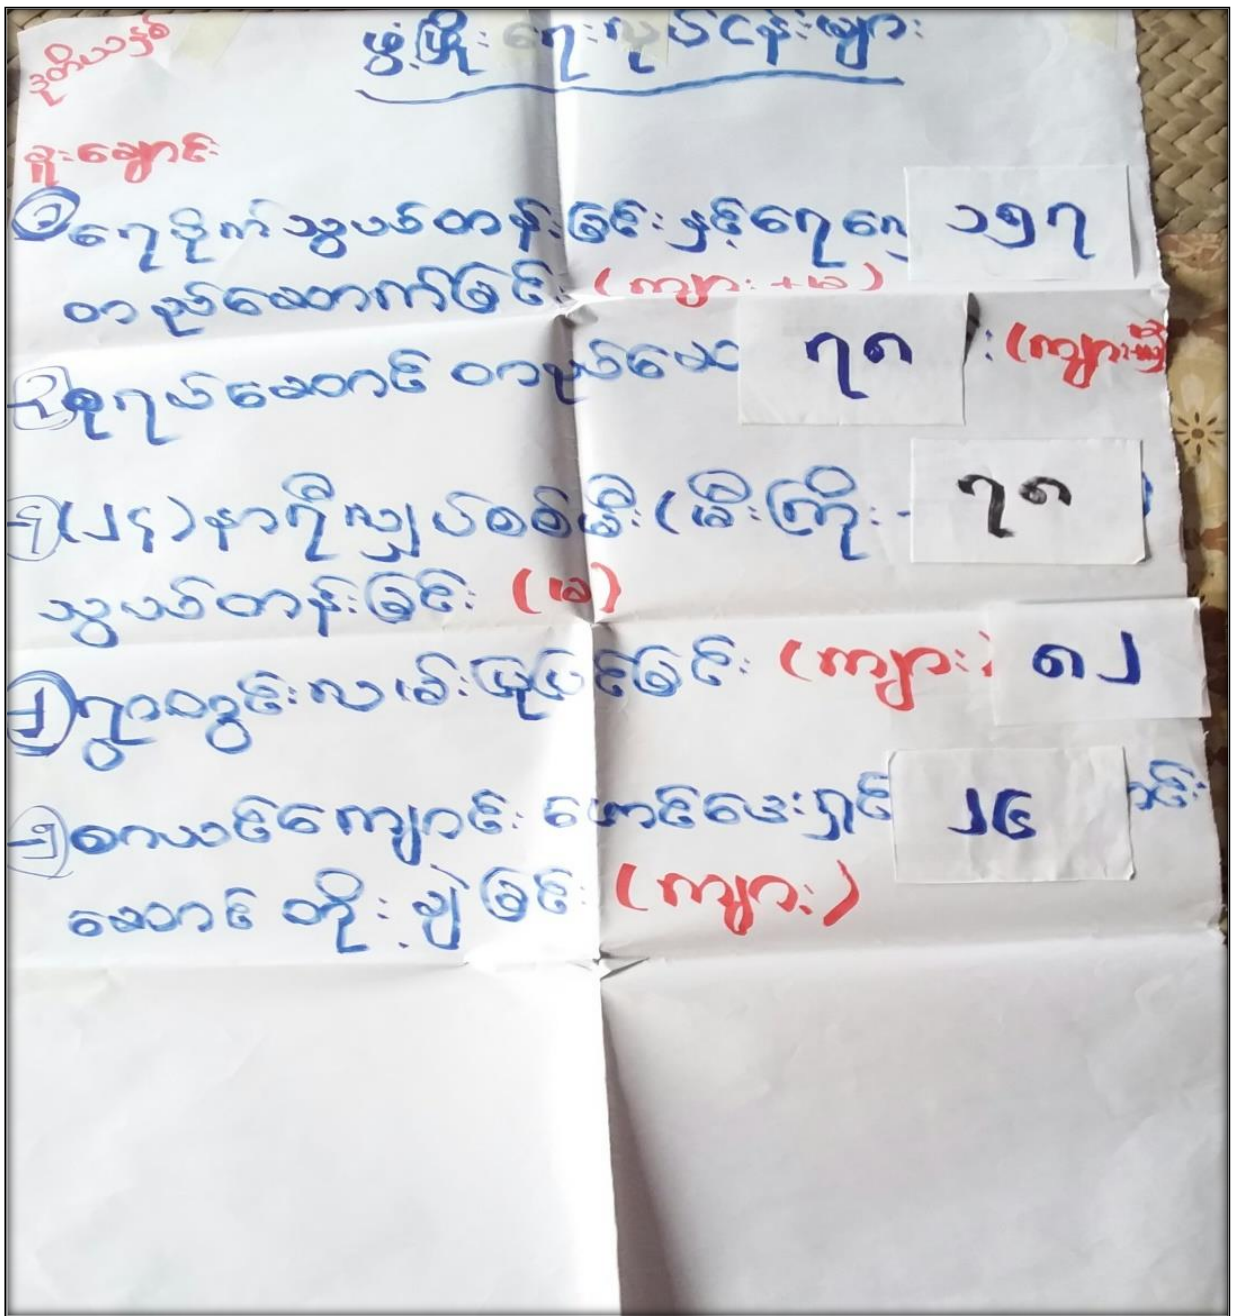 ဒုတိယနှစ်
ဖွံ့ဖြိုးရေးလုပ်ငန်းများ
ခူးချောင်း
၁ ရေပိုက်သွယ်တန်းခြင်းနှင့်ရေလှောင် ၁၅၇
တည်ဆောက်ခြင်း (ကျား+မ)
၃ စုရပ်ဆောင် တည်ဆော ၇၈ း (ကျား+မ)
၄ (၂၄)နာရီလျှပ်စစ်မီး(မီးကြိုး ၇၈ )
သွယ်တန်းခြင်း (မ)
၂ ရွာတွင်းလမ်းပြုပြင်ခြင်း (ကျား) ၈၂
၅ စာသင်ကျောင်း ၂၆
ဆောင် တိုးချဲ့ခြင်း (ကျား)